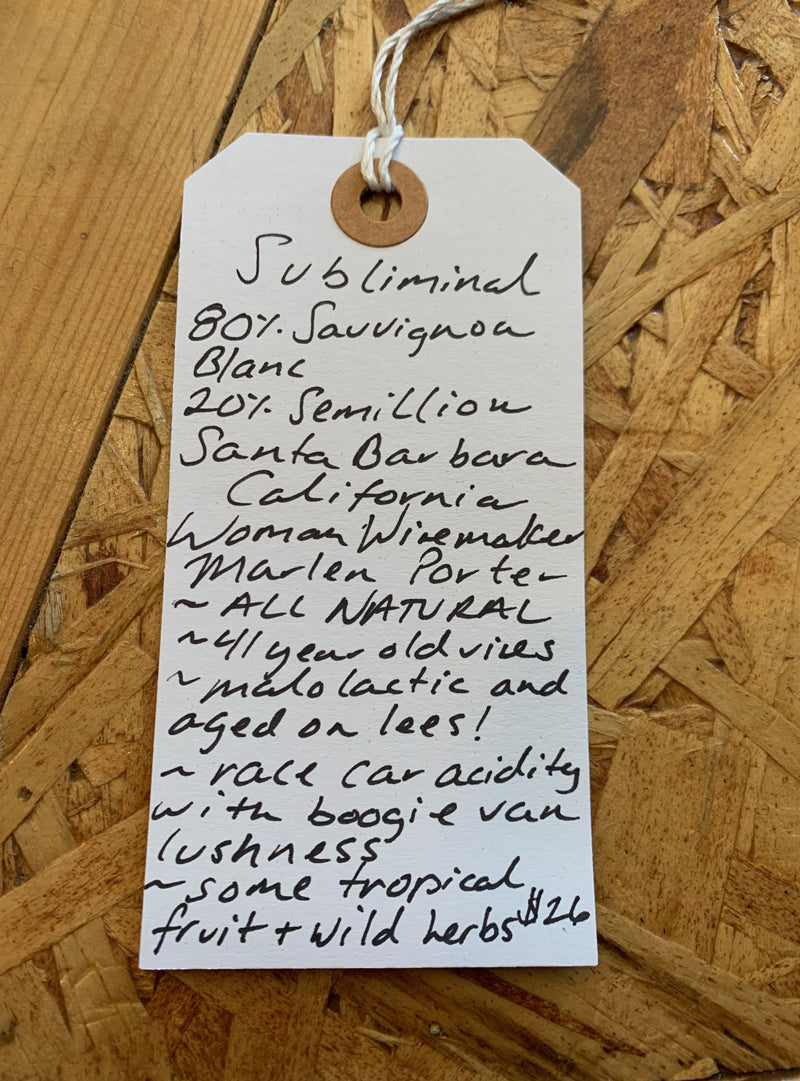 Subliminal
80% Sauvignon
Blanc
20% Semillion
Santa Barbara
California
Woman Winemaker
Marlen Porter
~ ALL NATURAL
~41 year old vines
~ malolactic and
aged on lees!
~ race car acidity
with boogie van
lushness
~some tropical
fruit + wild herbs $26